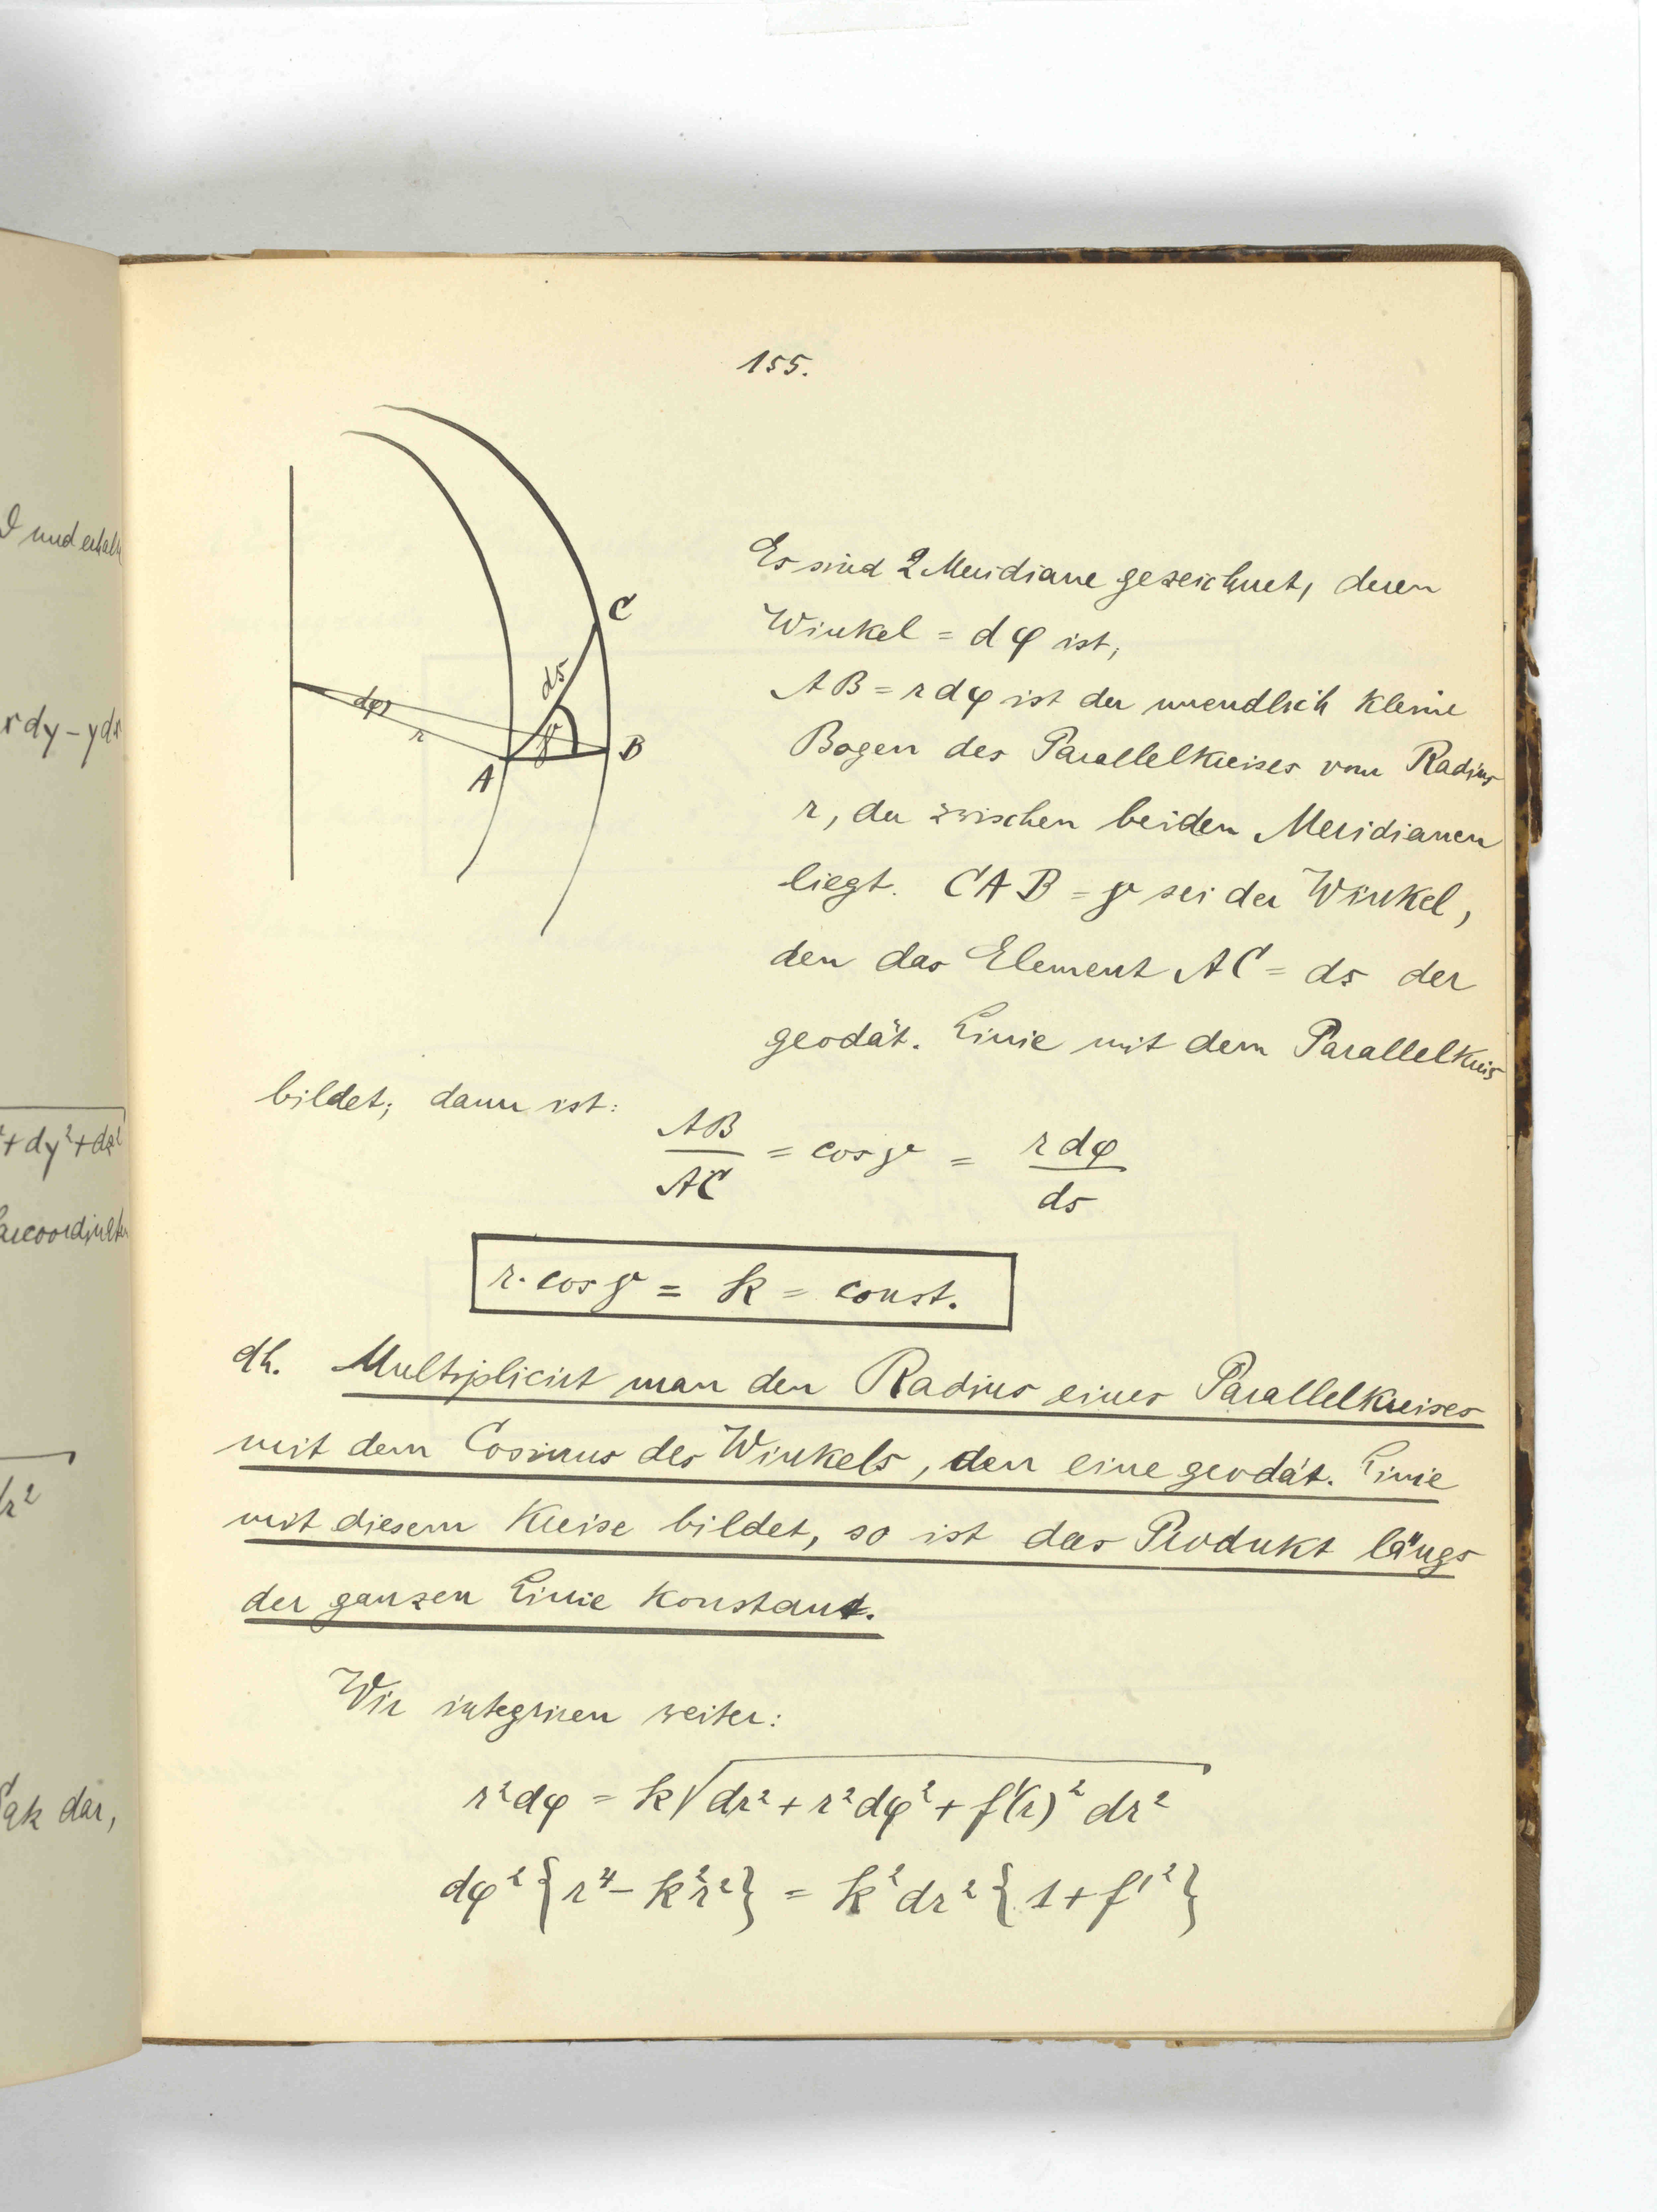 155.
C
ds
dφ
r
γ
B
A
Es sind 2 Meridiane gezeichnet, deren
Winkel = dφ ist,
AB = r dφ ist der unendlich kleine
Bogen des Parallelkreises vom Radius
r, der zwischen beiden Meridianen
liegt. CAB = γ sei der Winkel,
den das Element AC = ds der
geodät. Linie mit dem Parallelkreis
bildet; dann ist:
AB/AC = cos γ = r dφ/ds
r · cos γ = k = const.
dh. Multiplicirt man den Radius eines Parallelkreises
mit dem Cosinus des Winkels, den eine geodät. Linie
mit diesem Kreise bildet, so ist das Produkt längs
der ganzen Linie konstant.
Wir integriren weiter:
r²dφ = k√(dr² + r²dφ² + f'(r)² dr²)
dφ² {r⁴ - k²r²} = k² dr² {1 + f'²}
I und erhalt
x dy - y dx
² + dy² + dz²
arcoordinaten
r²
dar,